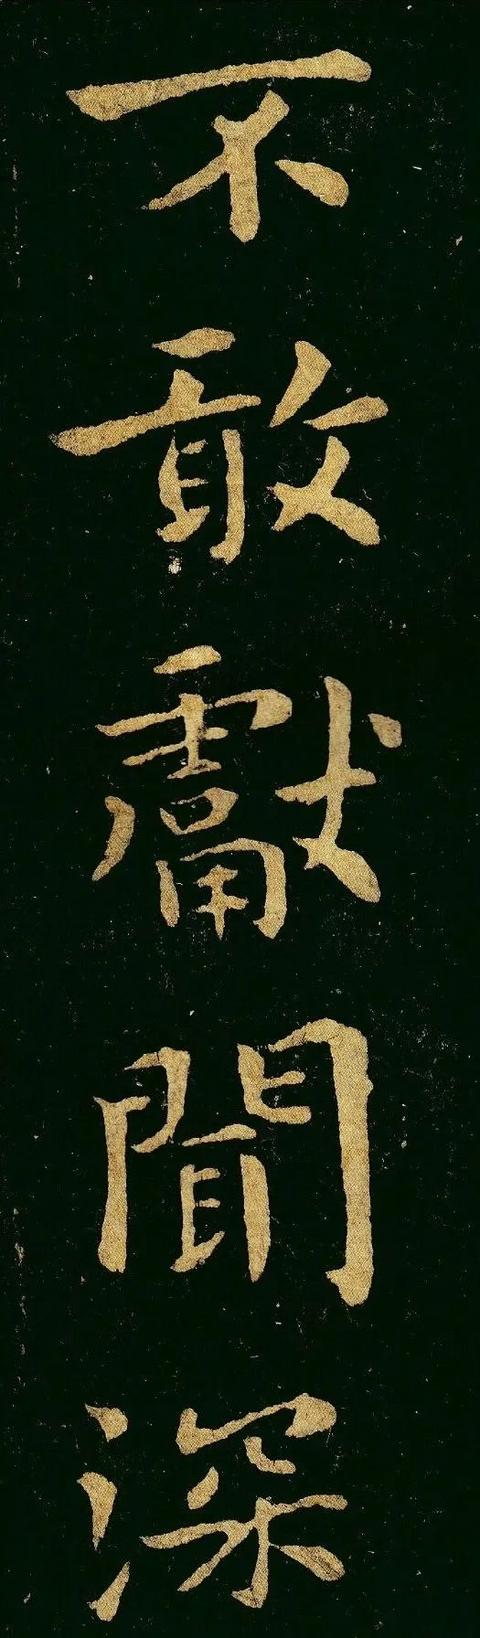 不敢獻聞深